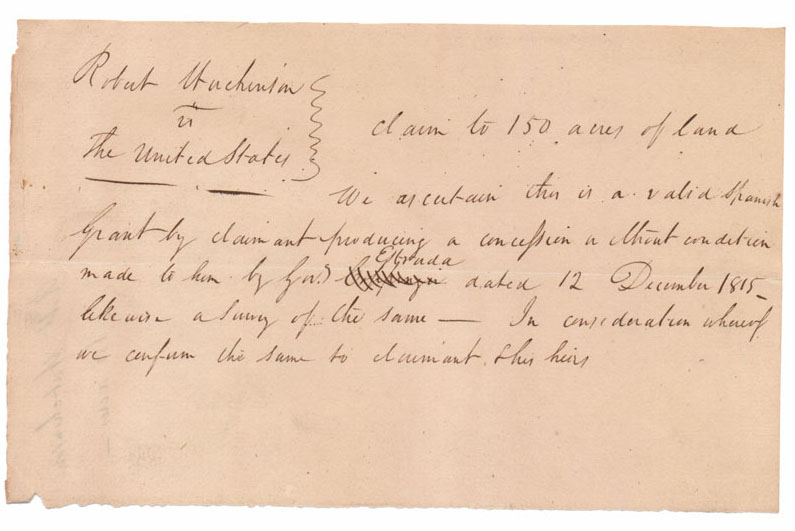 Robert Huchinson
vs
The United States
claim to 150 acres of land
We ascertain this is a valid Spanish
Grant by claimant producing a concession without condition
Estrada
made to him by Govr. dated 12 December 1815_
likewise a Survey of the same — In consideration whereof
we confirm the same to claimant & his heirs